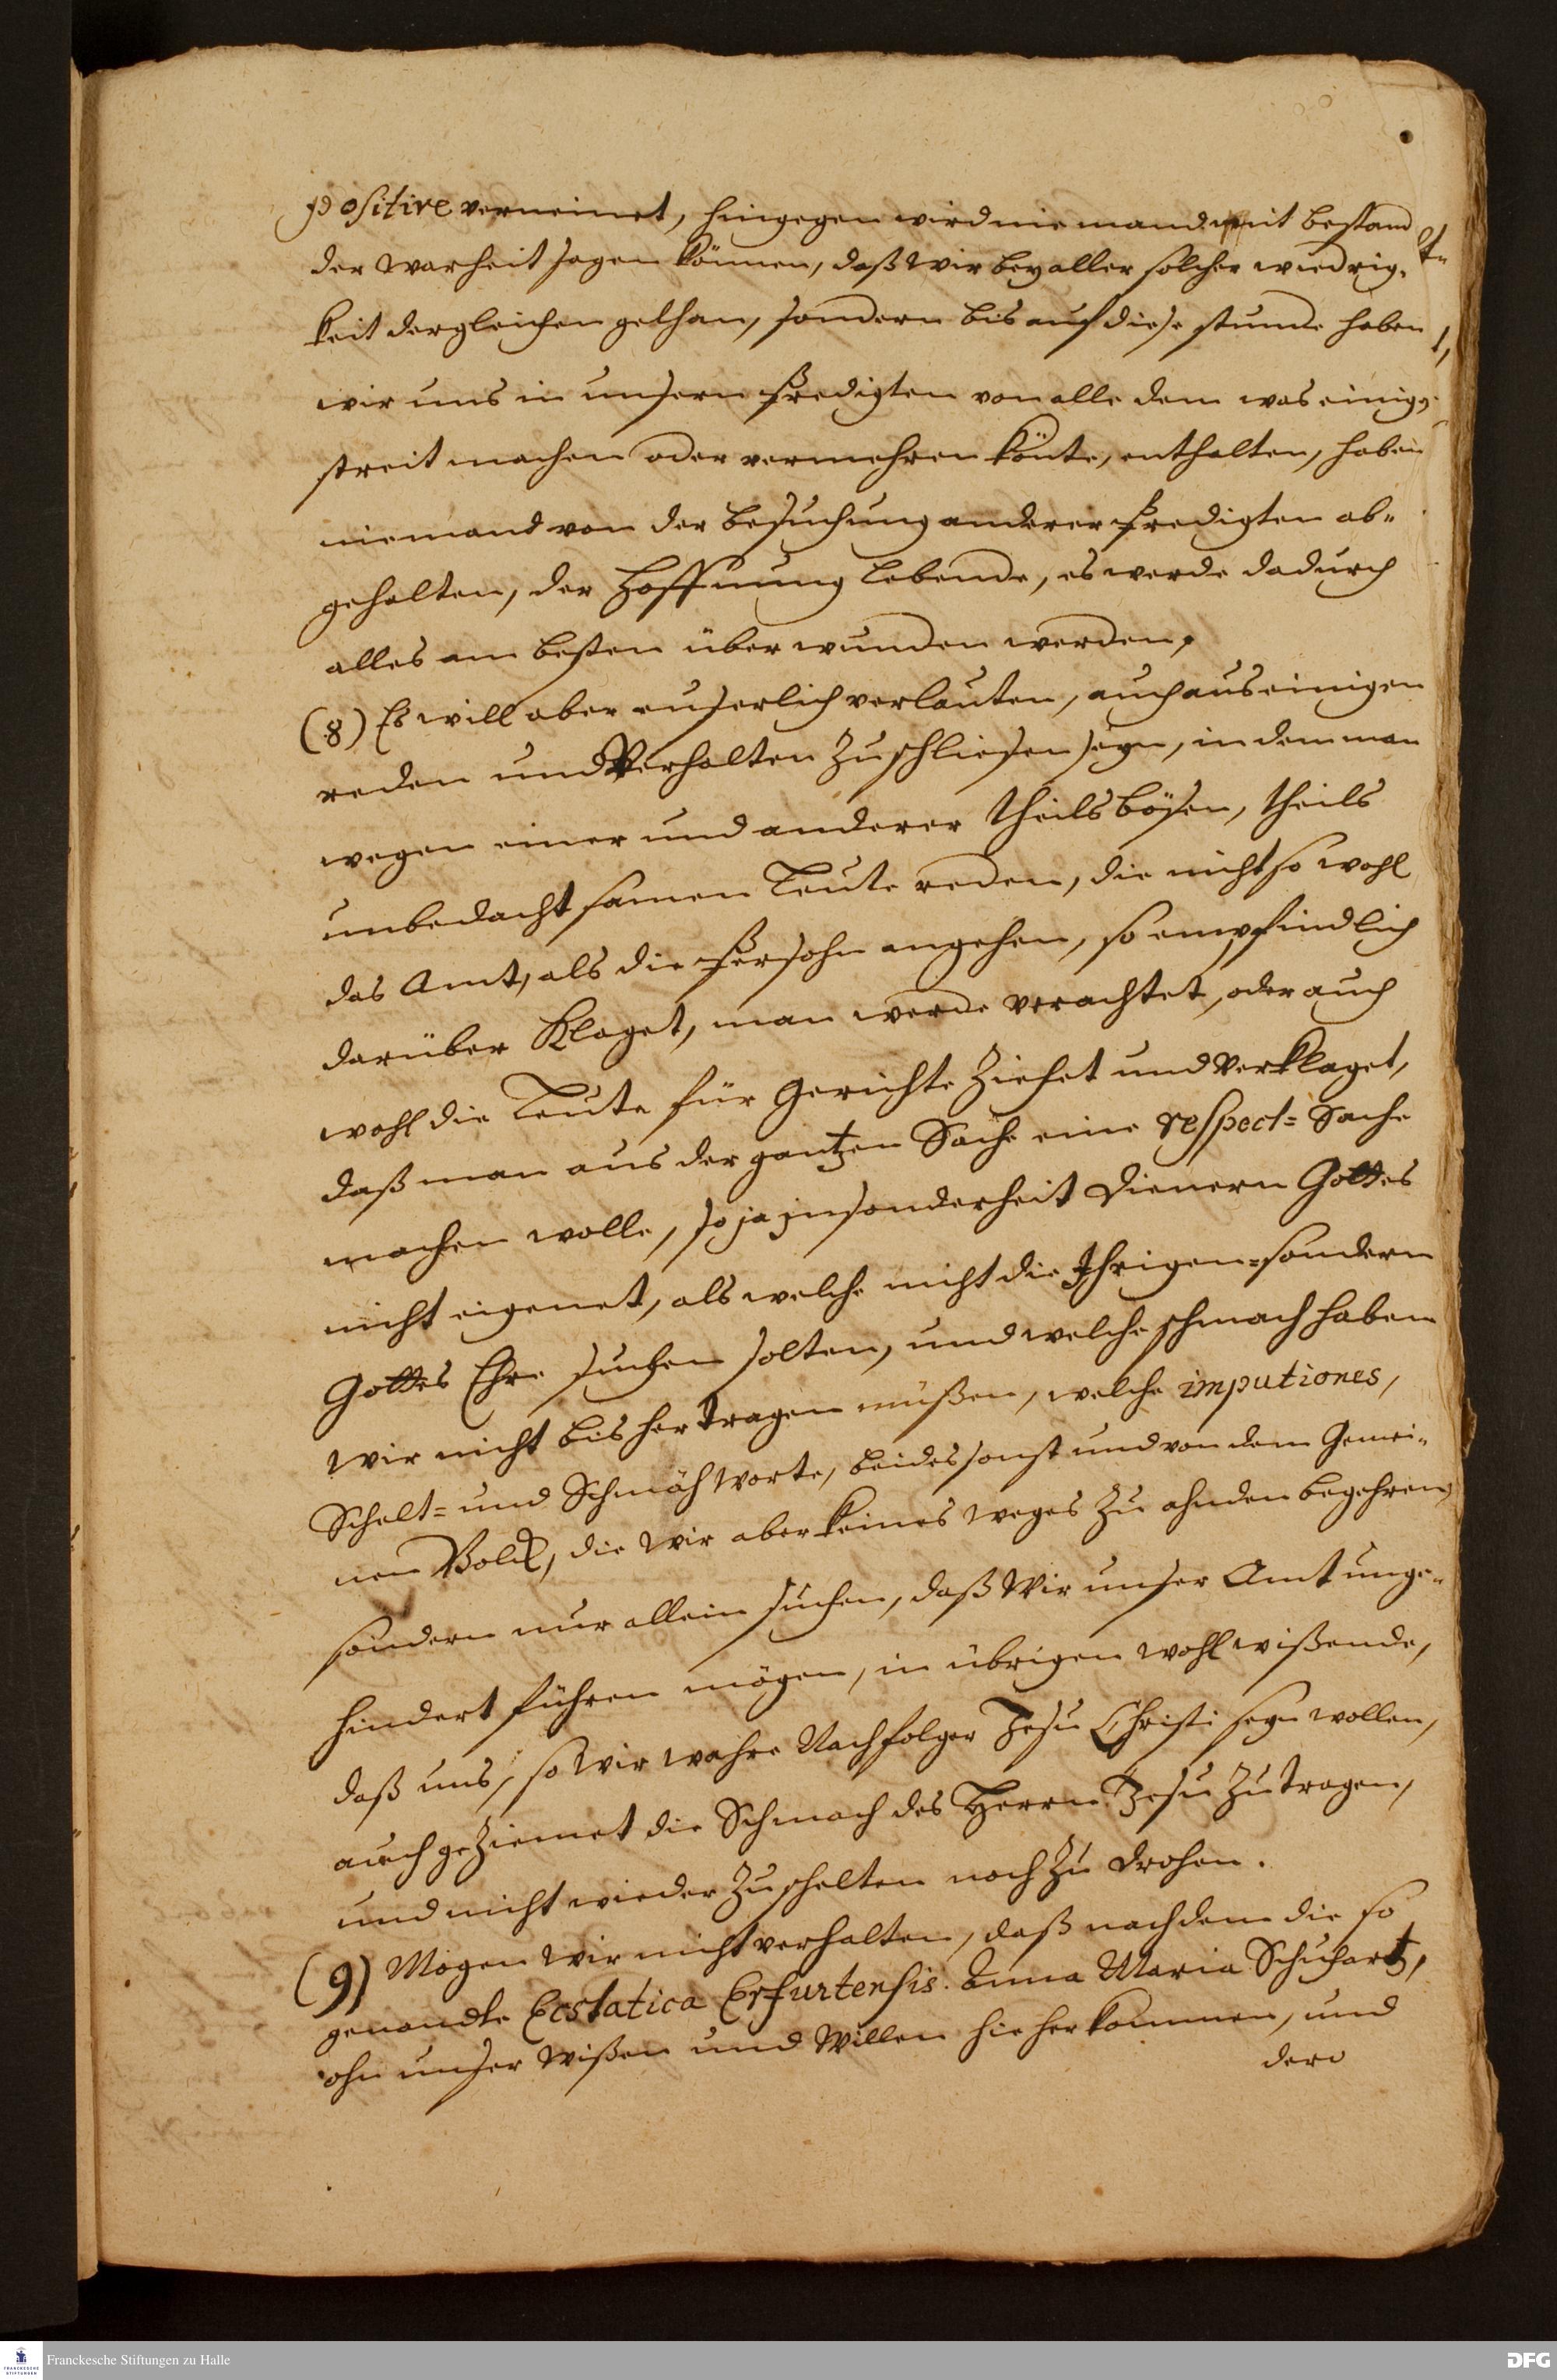 positive verneinet, hingegen wird niemand mit bestand
der warheit sagen können, daß wir bey aller solcher wiedrig-
keit dergleichen gethan, sondern bis auf diese stunde haben
wir uns in unsern Predigten von alle dem was einige
streit machen oder vermehren könte, enthalten, haben
niemand von der besuchung anderer Predigten ab-
gehalten, der Hoffnung lebende, es werde dadurch
alles am besten überwunden werden.
(8) Es will aber euserlich verlauten, auch aus einigen
reden und Verhalten zu schliesen seyn, in dem man
wegen einer und anderer theils bösen, theils
unbedachtsamen Leute reden, die nicht so wohl
das Amt, als die Persohn angehen, so empfindlich
darüber Klaget, man werde verachtet, oder auch
wohl die Leute für Gerichte Ziehet und verklaget,
daß man aus der gantzen Sache eine respect= Sache
machen wolle, so ja insonderheit Dienern Gottes
nicht eigenet, als welche nicht die Ihrigen=sondern
Gottes Ehre suchen solten, und welche schmach haben
wir nicht bisher tragen müßen, welche imputiones,
Schelt= und Schmäh Worte, beides sonst und von dem Gemei-
nen Volck, die wir aber keines weges zu ahnden begehren,
sondern nur allein suchen, daß Wir unser Amt unge-
hindert führen mögen, in übrigen wohl wißende,
daß uns, so Wir wahre Nachfolger Jesu Christi seyn wollen,
auch geziemet die Schmach des Herrn Jesu zu tragen,
und nicht wieder zu schelten noch zu drohen.
(9) Mögen wir nicht verhalten, daß nachdem die so
genandte Ecstatica Erfurtensis. Anna Maria Schuchartz,
ohn unser Wißen und Willen hieher kommen, und
dero
Franckesche Stiftungen zu Halle
FRANCKESCHE STIFTUNGEN
DFG